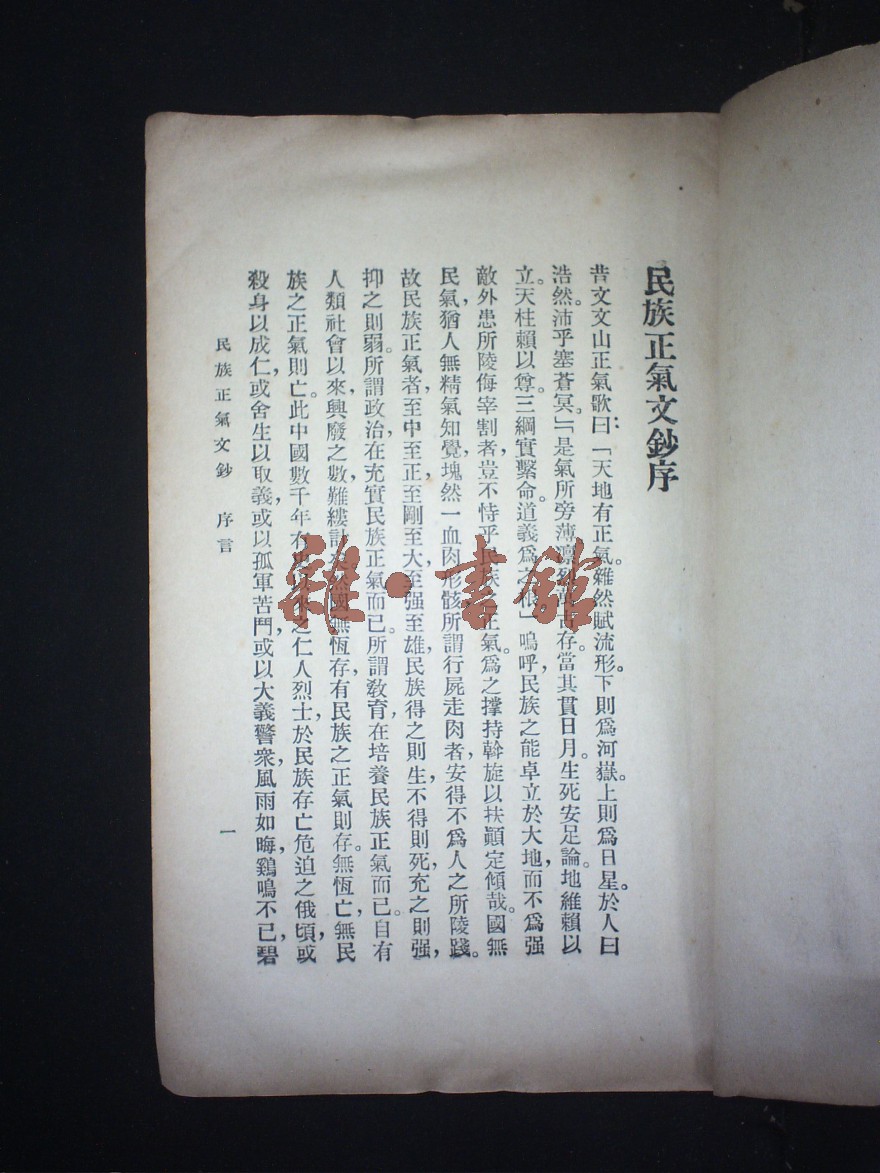 民族正氣文鈔序
昔文文山正氣歌曰：「天地有正氣。雜然賦流形。下則爲河嶽。上則爲日星。於人曰
浩然。沛乎塞蒼冥。」「是氣所旁薄凛 古存。當其貫日月。生死安足論。地維賴以
立。天柱賴以尊。三綱實繫命。道義爲之根」嗚呼，民族之能卓立於大地，而不爲强
敵外患所陵侮宰割者，豈不恃乎民族之正氣。爲之撑持斡旋以扶顚定傾哉。國無
民氣，猶人無精氣知覺，塊然一血肉形骸，所謂行屍走肉者，安得不爲人之所陵踐。
故民族正氣者，至中至正至剛至大至强至雄，民族得之則生，不得則死，充之則强，
抑之則弱。所謂政治，在充實民族正氣而已。所謂敎育，在培養民族正氣而已。自有
人類社會以來，興廢之數，難縷計 然國無恆存，有民族之正氣則存。無恆亡，無民
族之正氣則亡。此中國數千年有 以來之仁人烈士，於民族存亡危迫之俄頃，或
殺身以成仁，或舍生以取義，或以孤軍苦鬥，或以大義警衆，風雨如晦，鷄鳴不已，碧
民族正氣文鈔 序言
一
雜·書館